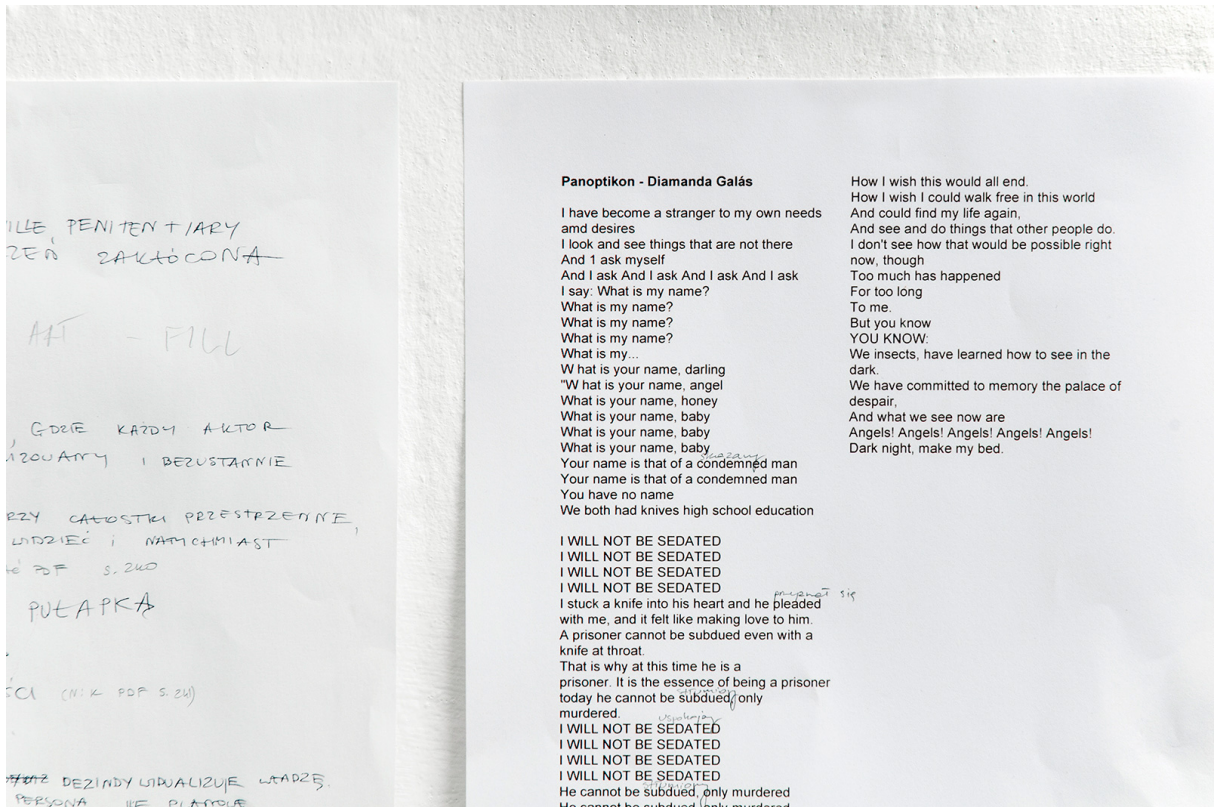 PENITENT/ARY
ZAKŁÓCONA
ART - FILL
, GDZIE KAŻDY AKTOR
I BEZUSTANNIE
CAŁOSTKI PRZESTRZENNE,
WIDZIEĆ I NATYCHMIAST
PDF S. 240
PUŁAPKA
PDF S. 241)
DEZINDYWIDUALIZUJE WŁADZĘ.
PERSONA
Panoptikon - Diamanda Galás
I have become a stranger to my own needs
amd desires
I look and see things that are not there
And 1 ask myself
And I ask And I ask And I ask And I ask
I say: What is my name?
What is my name?
What is my name?
What is my name?
What is my...
W hat is your name, darling
"W hat is your name, angel
What is your name, honey
What is your name, baby
What is your name, baby
What is your name, baby
skazany
Your name is that of a condemned man
Your name is that of a condemned man
You have no name
We both had knives high school education
I WILL NOT BE SEDATED
I WILL NOT BE SEDATED
I WILL NOT BE SEDATED
I WILL NOT BE SEDATED
się
I stuck a knife into his heart and he pleaded
with me, and it felt like making love to him.
A prisoner cannot be subdued even with a
knife at throat.
That is why at this time he is a
prisoner. It is the essence of being a prisoner
today he cannot be subdued, only
murdered.
I WILL NOT BE SEDATED
I WILL NOT BE SEDATED
I WILL NOT BE SEDATED
I WILL NOT BE SEDATED
He cannot be subdued, only murdered
He cannot be subdued, only murdered
How I wish this would all end.
How I wish I could walk free in this world
And could find my life again,
And see and do things that other people do.
I don't see how that would be possible right
now, though
Too much has happened
For too long
To me.
But you know
YOU KNOW:
We insects, have learned how to see in the
dark.
We have committed to memory the palace of
despair,
And what we see now are
Angels! Angels! Angels! Angels! Angels!
Dark night, make my bed.